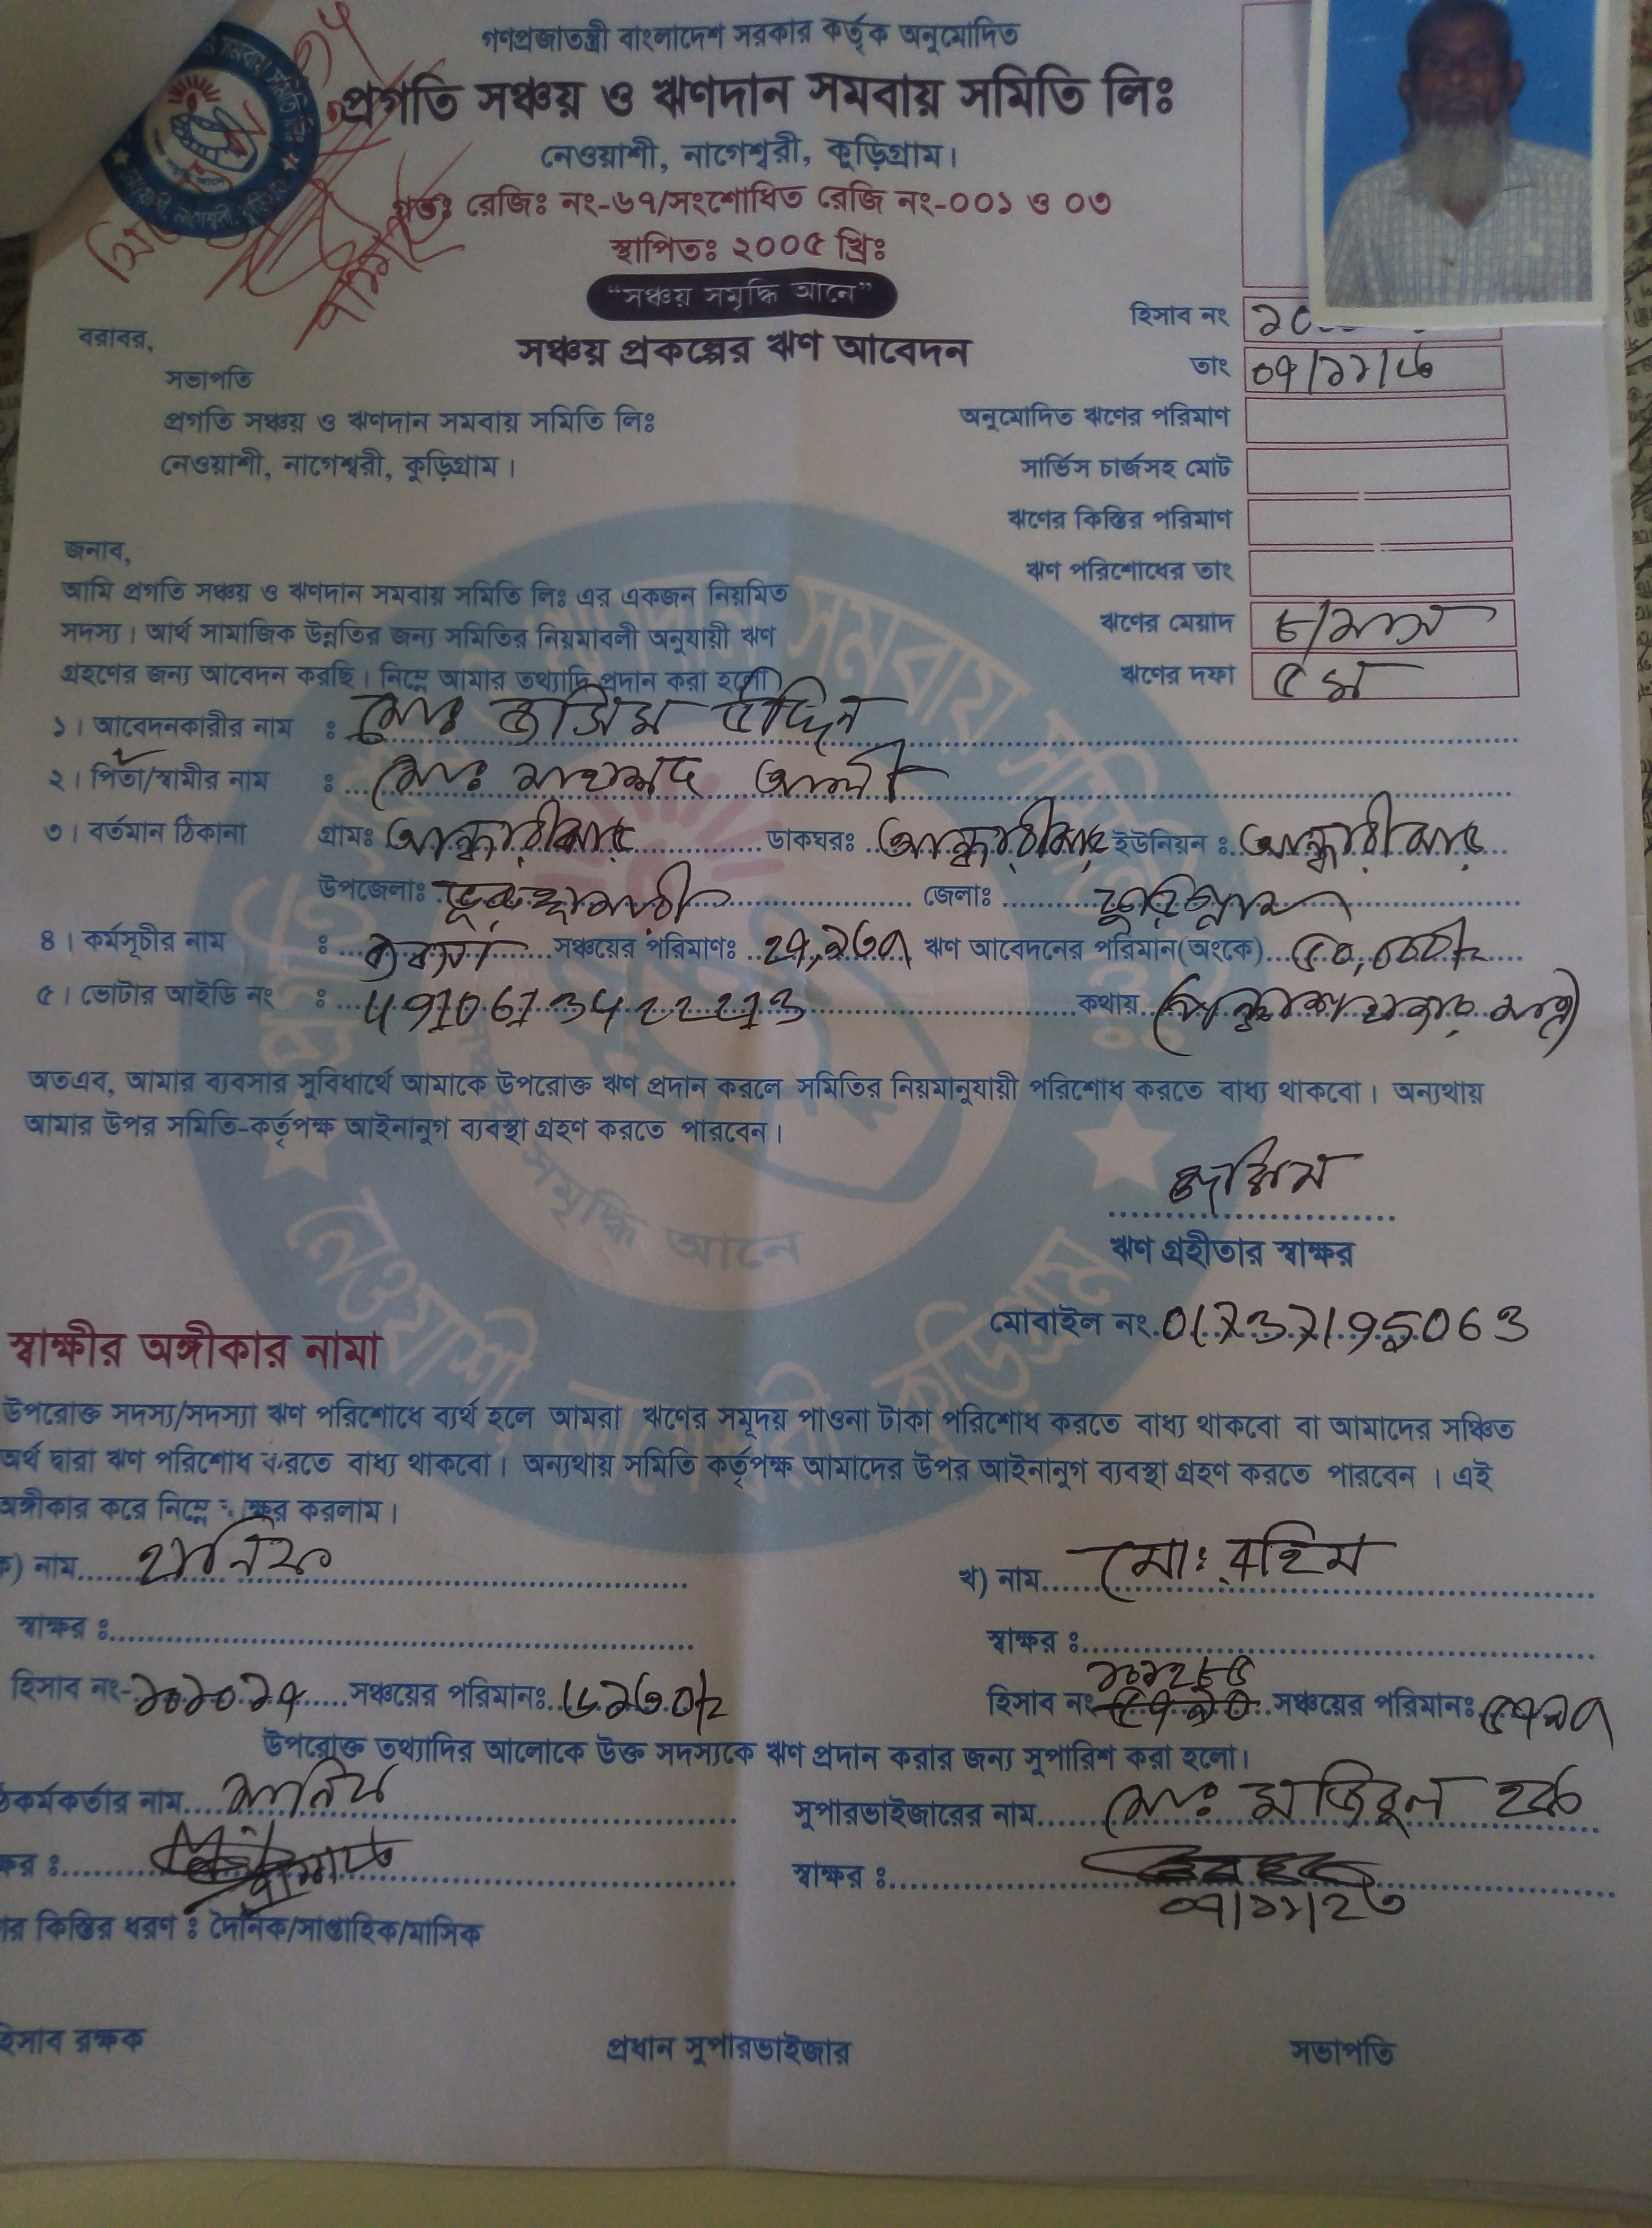 গণপ্রজাতন্ত্রী বাংলাদেশ সরকার কর্তৃক অনুমোদিত
প্রগতি সঞ্চয় ও ঋণদান সমবায় সমিতি লিঃ
নেওয়াশী, নাগেশ্বরী, কুড়িগ্রাম।
গভঃ রেজিঃ নং-৬৭/সংশোধিত রেজি নং-০০১ ও ০৩
স্থাপিতঃ ২০০৫ খ্রিঃ
"সঞ্চয় সমৃদ্ধি আনে"
সঞ্চয় প্রকল্পের ঋণ আবেদন
হিসাব নং
তাং ০৭/১১/
অনুমোদিত ঋণের পরিমাণ
সার্ভিস চার্জসহ মোট
ঋণের কিস্তির পরিমাণ
ঋণ পরিশোধের তাং
ঋণের মেয়াদ ৮/মাস
ঋণের দফা ৫ম
বরাবর,
সভাপতি
প্রগতি সঞ্চয় ও ঋণদান সমবায় সমিতি লিঃ
নেওয়াশী, নাগেশ্বরী, কুড়িগ্রাম।
জনাব,
আমি প্রগতি সঞ্চয় ও ঋণদান সমবায় সমিতি লিঃ এর একজন নিয়মিত
সদস্য। আর্থ সামাজিক উন্নতির জন্য সমিতির নিয়মাবলী অনুযায়ী ঋণ
গ্রহণের জন্য আবেদন করছি। নিম্নে আমার তথ্যাদি প্রদান করা হলো
১। আবেদনকারীর নাম : মোঃ জসিম উদ্দিন
২। পিতা/স্বামীর নাম : মোঃ মাহাম্মদ আলী
৩। বর্তমান ঠিকানা গ্রামঃ আন্ধারীঝাড় ডাকঘরঃ আন্ধারীঝাড় ইউনিয়ন : আন্ধারীঝাড়
উপজেলাঃ ভূরুঙ্গামারী জেলাঃ কুড়িগ্রাম
৪। কর্মসূচীর নাম : ব্যবসা সঞ্চয়ের পরিমাণঃ ২৭,৯৩৭ ঋণ আবেদনের পরিমান(অংকে) ৫০,০০০/=
৫। ভোটার আইডি নং : 4910613422213 কথায় (পঞ্চাশ হাজার মাত্র)
অতএব, আমার ব্যবসার সুবিধার্থে আমাকে উপরোক্ত ঋণ প্রদান করলে সমিতির নিয়মানুযায়ী পরিশোধ করতে বাধ্য থাকবো। অন্যথায়
আমার উপর সমিতি-কর্তৃপক্ষ আইনানুগ ব্যবস্থা গ্রহণ করতে পারবেন।
জসিম
ঋণ গ্রহীতার স্বাক্ষর
মোবাইল নং 01737195063
স্বাক্ষীর অঙ্গীকার নামা
উপরোক্ত সদস্য/সদস্যা ঋণ পরিশোধে ব্যর্থ হলে আমরা ঋণের সমূদয় পাওনা টাকা পরিশোধ করতে বাধ্য থাকবো বা আমাদের সঞ্চিত
অর্থ দ্বারা ঋণ পরিশোধ করতে বাধ্য থাকবো। অন্যথায় সমিতি কর্তৃপক্ষ আমাদের উপর আইনানুগ ব্যবস্থা গ্রহণ করতে পারবেন। এই
অঙ্গীকার করে নিম্নে ক্ষর করলাম।
ক) নাম হানিফ খ) নাম মোঃ রহিম
স্বাক্ষর : স্বাক্ষর :
হিসাব নং- ১০১০১৭ সঞ্চয়ের পরিমানঃ ১০১২৮৫
হিসাব নং সঞ্চয়ের পরিমানঃ
উপরোক্ত তথ্যাদির আলোকে উক্ত সদস্যকে ঋণ প্রদান করার জন্য সুপারিশ করা হলো।
ঠকর্মকর্তার নাম সুপারভাইজারের নাম মোঃ মজিবুল হক
ক্ষর : স্বাক্ষর :
০৭/১১/২৩
ণের কিস্তির ধরণ : দৈনিক/সাপ্তাহিক/মাসিক
হিসাব রক্ষক প্রধান সুপারভাইজার সভাপতি